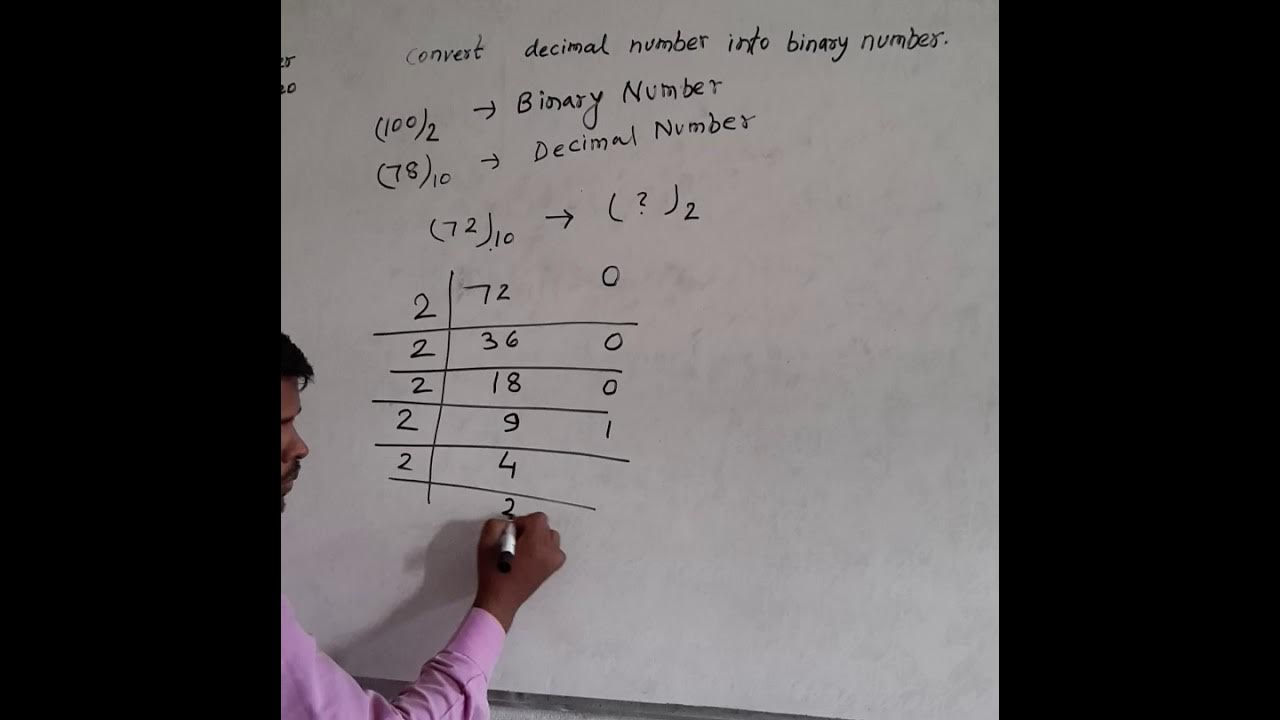 convert decimal number into binary number.
(100)2 → Binary Number
(78)10 → Decimal Number
(72)10 → ( ? )2
2 72 0
2 36 0
2 18 0
2 9 1
2 4
2